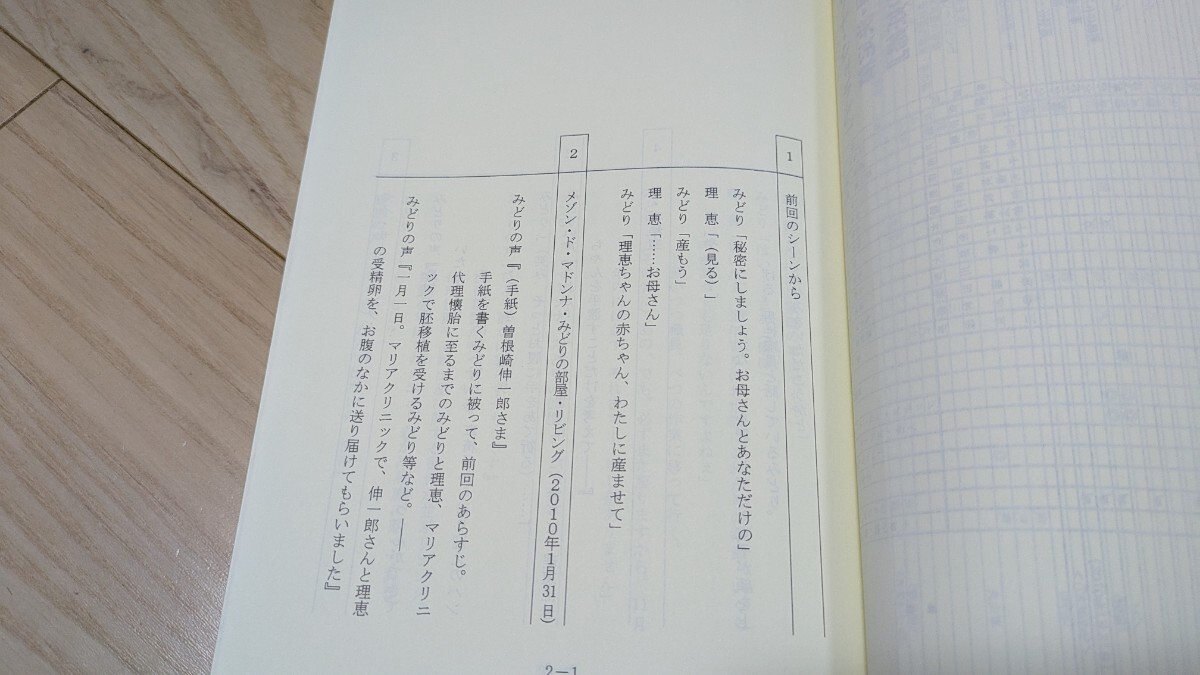 1
前回のシーンから
みどり「秘密にしましょう。お母さんとあなただけの」
理　恵「（見る）」
みどり「産もう」
理　恵「……お母さん」
みどり「理恵ちゃんの赤ちゃん、わたしに産ませて」
2
メゾン・ド・マドンナ・みどりの部屋・リビング（2010年1月31日）
みどりの声『（手紙）曽根崎伸一郎さま』
手紙を書くみどりに被って、前回のあらすじ。
代理懐胎に至るまでのみどりと理恵、マリアクリニ
ックで胚移植を受けるみどり等など。――
みどりの声『一月一日。マリアクリニックで、伸一郎さんと理恵
の受精卵を、お腹のなかに送り届けてもらいました』
2－1